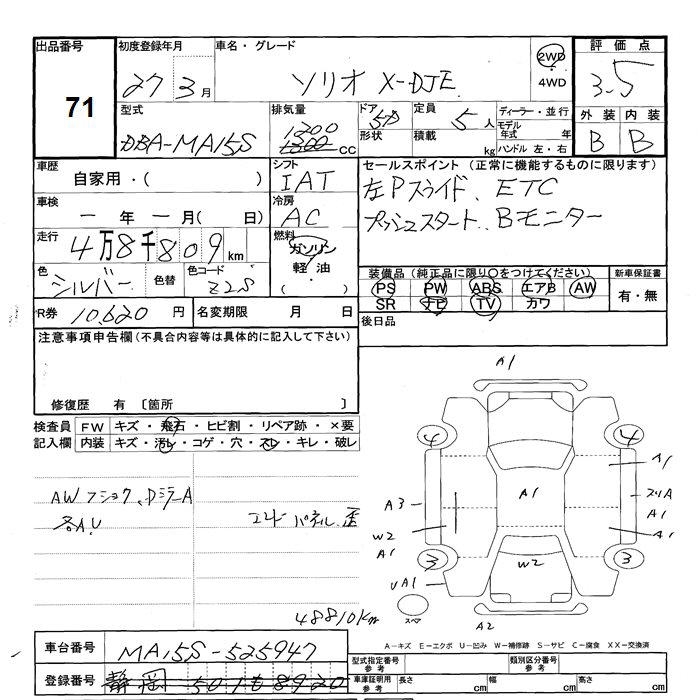 出品番号 初度登録年月 車名・グレード 2WD 評価点
71 27 3月 ソリオ X-DJE 4WD 3.5
型式 排気量 ドア 定員 ディーラー・並行 外装 内装
DBA-MA15S 1300 1300 cc 5D 形状 積載 5人 kg モデル年式 年 ハンドル 左・右 B B
車歴 シフト セールスポイント (正常に機能するものに限ります)
自家用・( ) IAT 左Pスライド、ETC
車検 冷房 プッシュスタート、Bモニター
ー年ー月( 日) AC
走行 4万8千809km 燃料 ガソリン 軽油 ( )
装備品(純正品に限り○をつけてください) 新車保証書
色 シルバー 色替 色コード Z2S PS PW ABS エアB AW 有・無
SR ナビ TV カワ
R券 10,620円 名変期限 月 日 後日品
注意事項申告欄(不具合内容等は具体的に記入して下さい)
修復歴 有 〔箇所 〕
検査員 FW キズ・飛石・ヒビ割・リペア跡・×要
記入欄 内装 キズ・汚レ・コゲ・穴・スレ・キレ・破レ
AWフショク、DミラーA
各A.U エンドパネル歪
48810km
A1
4 4
A1
A3 A1 スリA
A1
W2 A1
A1
3 W2 3
UA1
スペア A2
A－キズ E－エクボ U－凹み W－補修跡 S－サビ C－腐食 XX－交換済
車台番号 MA15S-525947
型式指定番号 参考 類別区分番号 参考
登録番号 静岡 501も8920
車庫証明用 参考 長さ cm 幅 cm 高さ cm